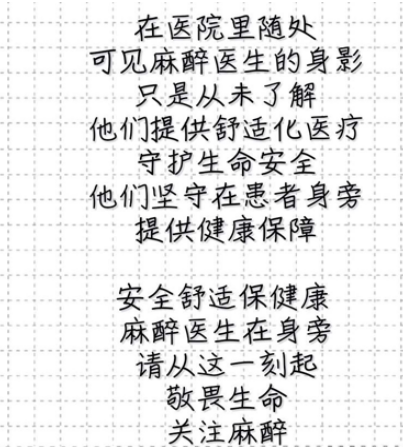 在医院里随处
可见麻醉医生的身影
只是从未了解
他们提供舒适化医疗
守护生命安全
他们坚守在患者身旁
提供健康保障
安全舒适保健康
麻醉医生在身旁
请从这一刻起
敬畏生命
关注麻醉